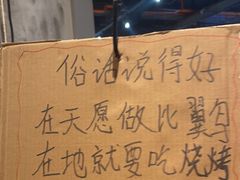 俗话说得好
在天愿做比翼鸟
在地就要吃烧烤